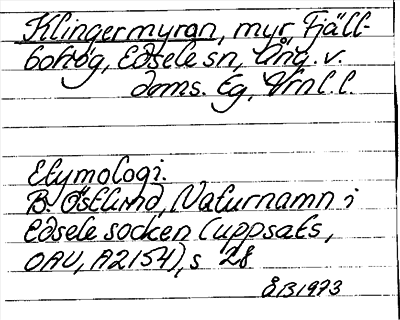 Klingermyran, myr, Fjäll-
bohög, Edsele sn, Ång. v.
doms. Eg, Vrnl. l.
Etymologi.
B. Östlund, Naturnamn i
Edsele socken (uppsats,
OAU, A2154), s 28
ÅB 1973